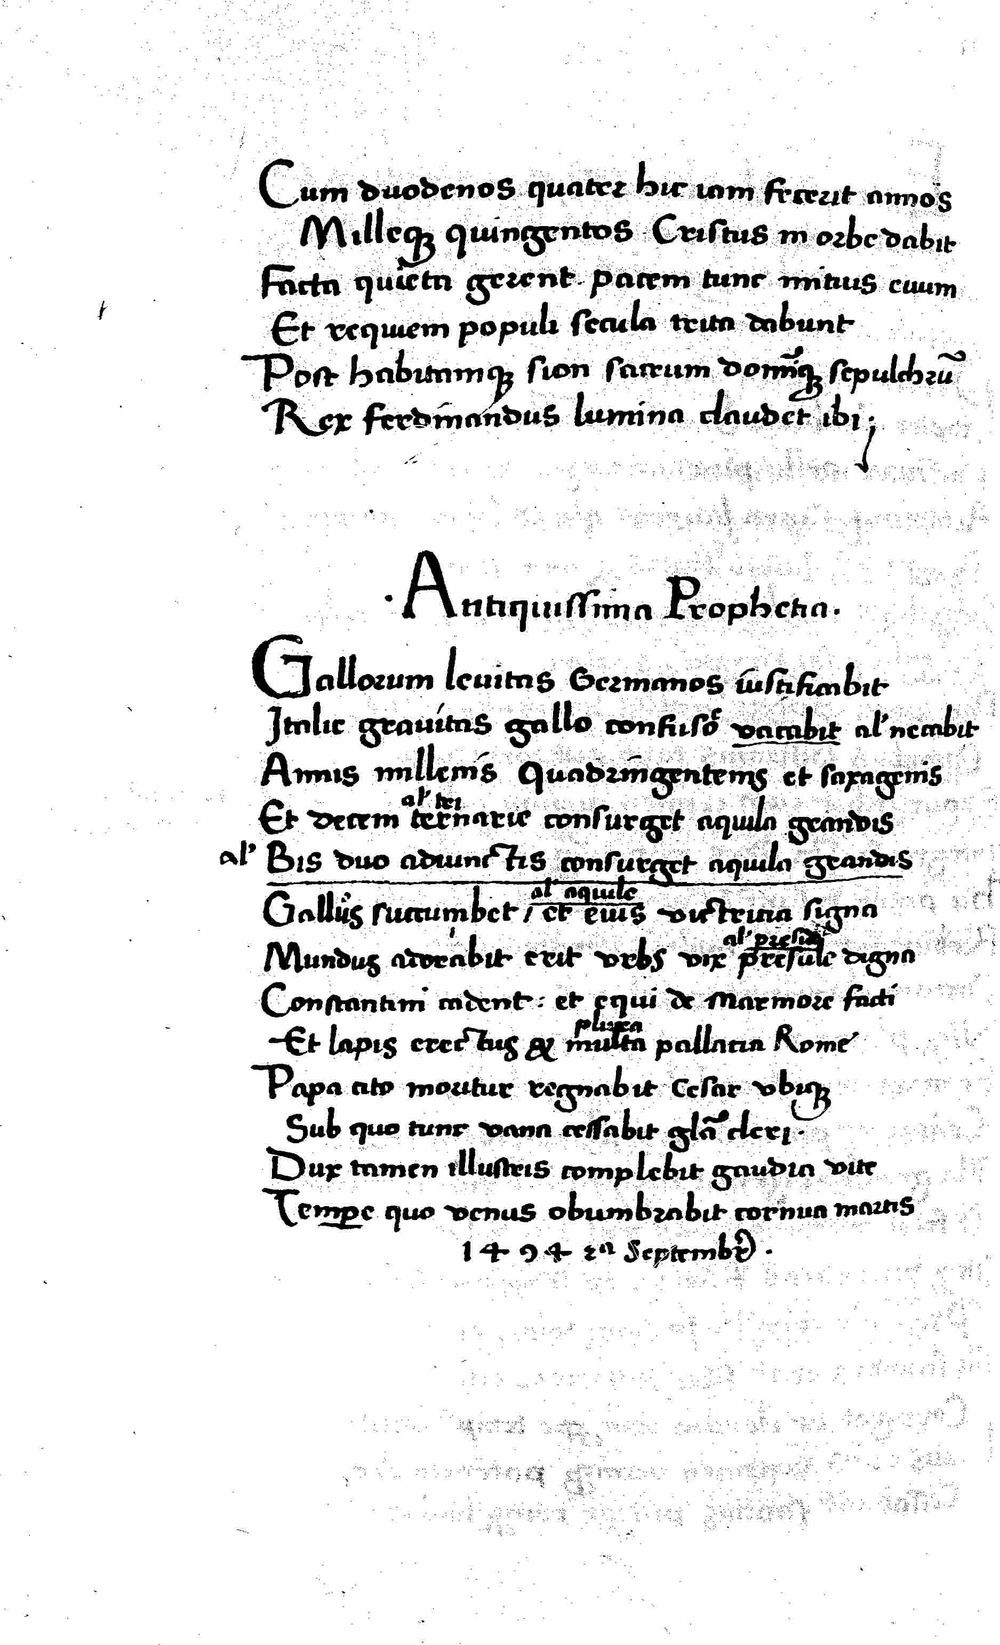 Cum duodenos quater hic iam fecerit annos
Milleqꝫ quingentos Cristus in orbe dabit
Facta quieta gerent pacem tunc mitius euum
Et requiem populi secula trita dabunt
Post habitamqꝫ sion sacrum domĩqꝫ sepulchrũ
Rex ferdinandus lumina claudet ibi;
· Antiquissima Prophetia ·
Gallorum leuitas Germanos iustificabit
Italie grauitas gallo confuso vacabit al' necabit
Annis millenis Quadringentenis et saxagenis
al' tri
Et decem ternarie consurget aquila grandis
al' Bis duo adiunctis consurget aquila grandis
al' aquile
Gallus succumbet / et eius victricia signa
al' presid
Mundus adorabit erit vrbs vix presule digna
Constantini cadent : et equi de marmore facti
plura
Et lapis erectus & multa pallatia Rome
Papa cito moritur regnabit Cesar vbiqꝫ
Sub quo tunc vana cessabit glã cleri ·
Dux tamen illustris complebit gaudia vite
Tempe quo venus obumbrabit cornua martis
1494 2ª Septembr ·